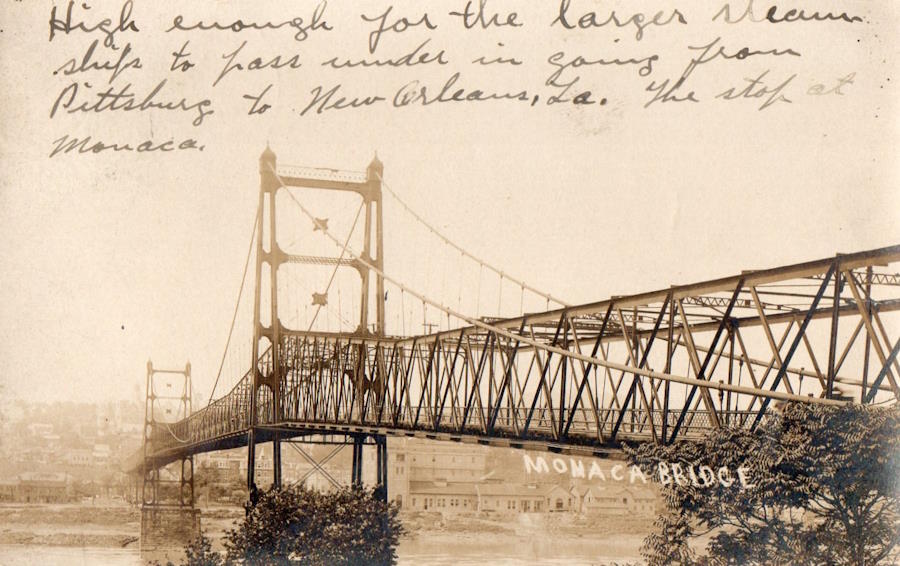 High enough for the larger steam
ships to pass under in going from
Pittsburg to New Orleans, La. The stop at
Monaca.
MONACA BRIDGE